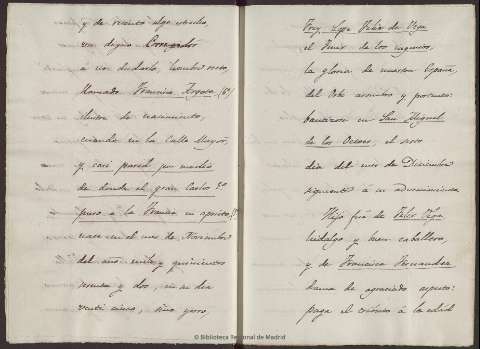 y de
un digno Corregidor
á un dudarlo, hombre recto,
llamado Francisco
de nacimiento,
cuando en la Calle Mayor,
y casi pared por medio
de donde el gran Carlos 5º
puso á la Francia en aprieto,
nace en el mes de Noviembre
del año mil y quinientos
sesenta y dos, en su dia
veinti cinco,
Frey Lope Felix de Vega
el Fenix de los ingenios,
la gloria de nuestra España,
del Orbe asombro y portento:
bautizose en San Miguel
de los Octoes, el sexto
dia del mes de Diciembre
siguiente á su advenimiento.
Hijo fue de Felix Vega
hidalgo y buen caballero,
y de Francisca Hernandez
dama de agraciado aspecto:
paga el tributo á la edad
© Biblioteca Regional de Madrid